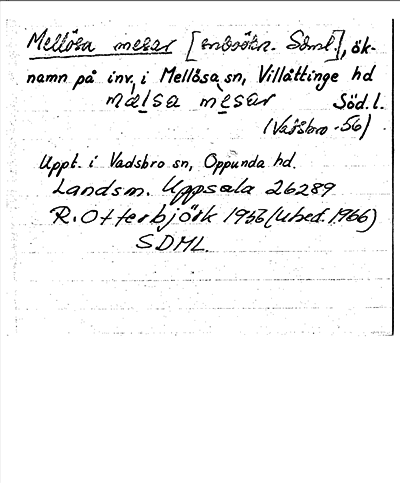 Mellösa mesar [inbsökn. Sdml.], ök-
namn på inv. i Mellösa sn, Villåttinge hd
mälsa mesar Söd.l.
(Vadsbro -56)
Uppt. i Vadsbro sn, Oppunda hd.
Landsm. Uppsala 26289
R. Otterbjörk 1956 (Ubed. 1966)
SDML.